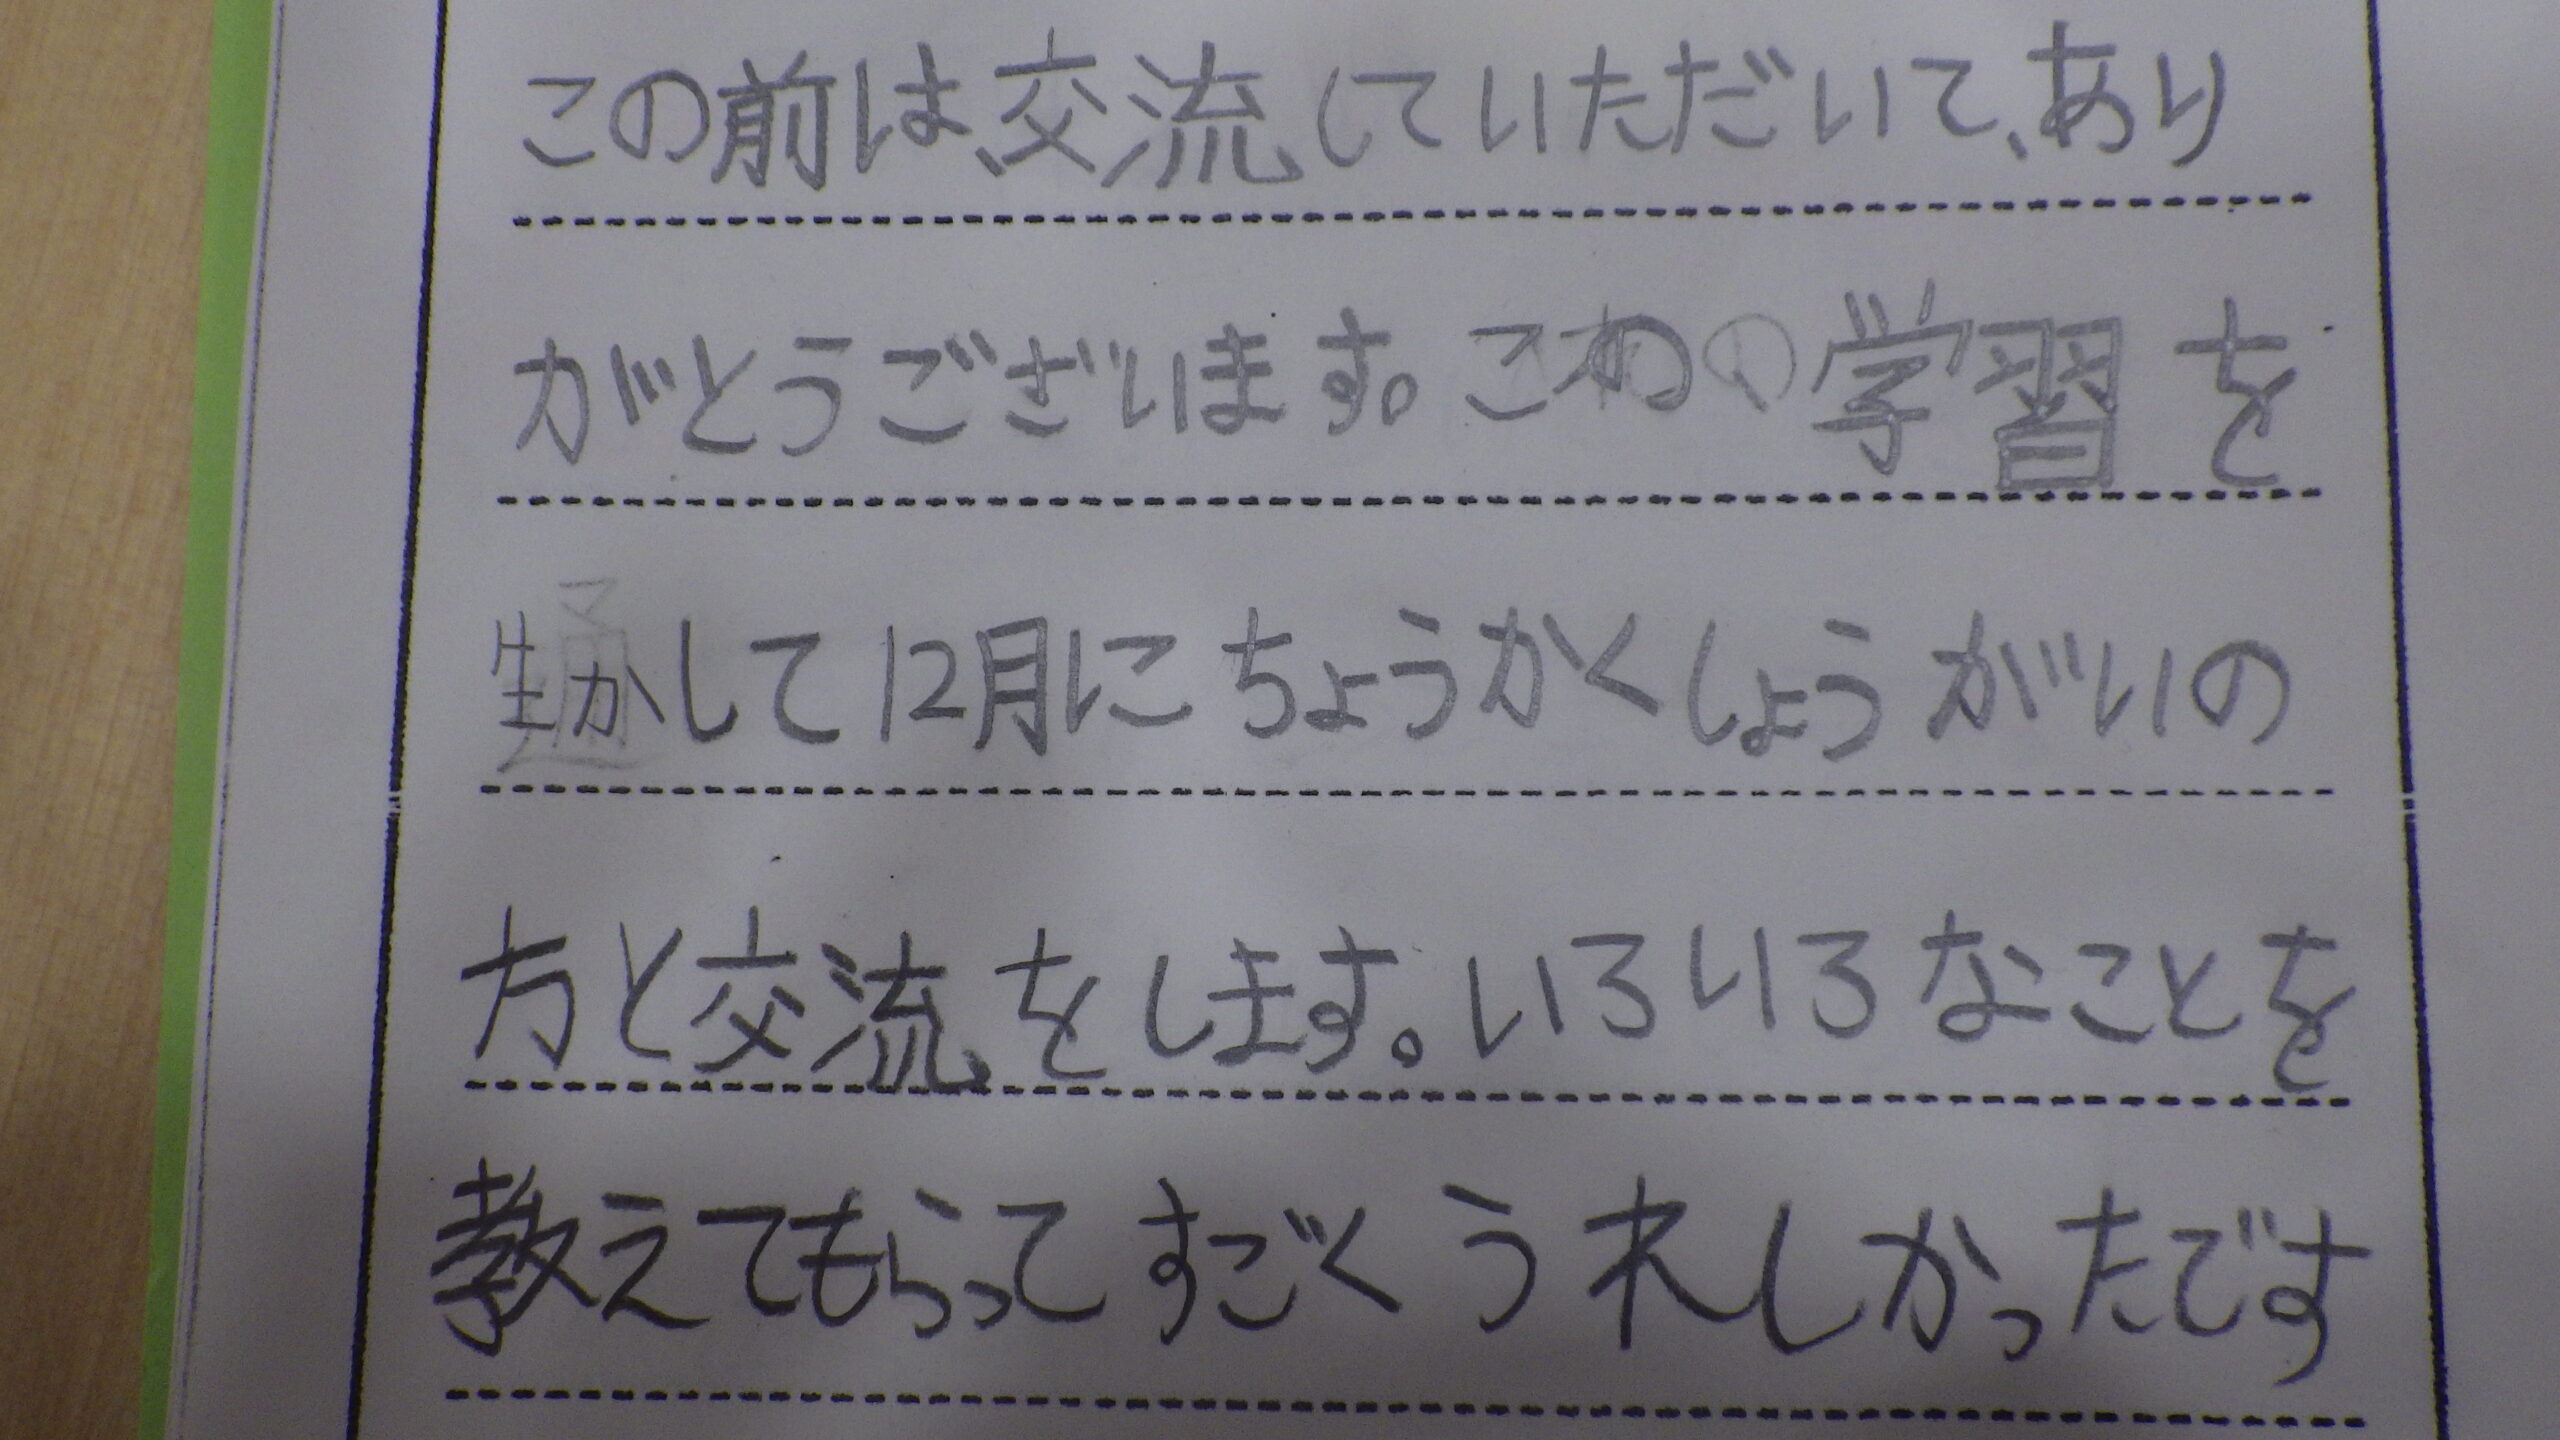 この前は、交流していただいて、あり
がとうございます。この学習を
生かして12月にちょうかくしょうがいの
方と交流をします。いろいろなことを
教えてもらってすごくうれしかったです